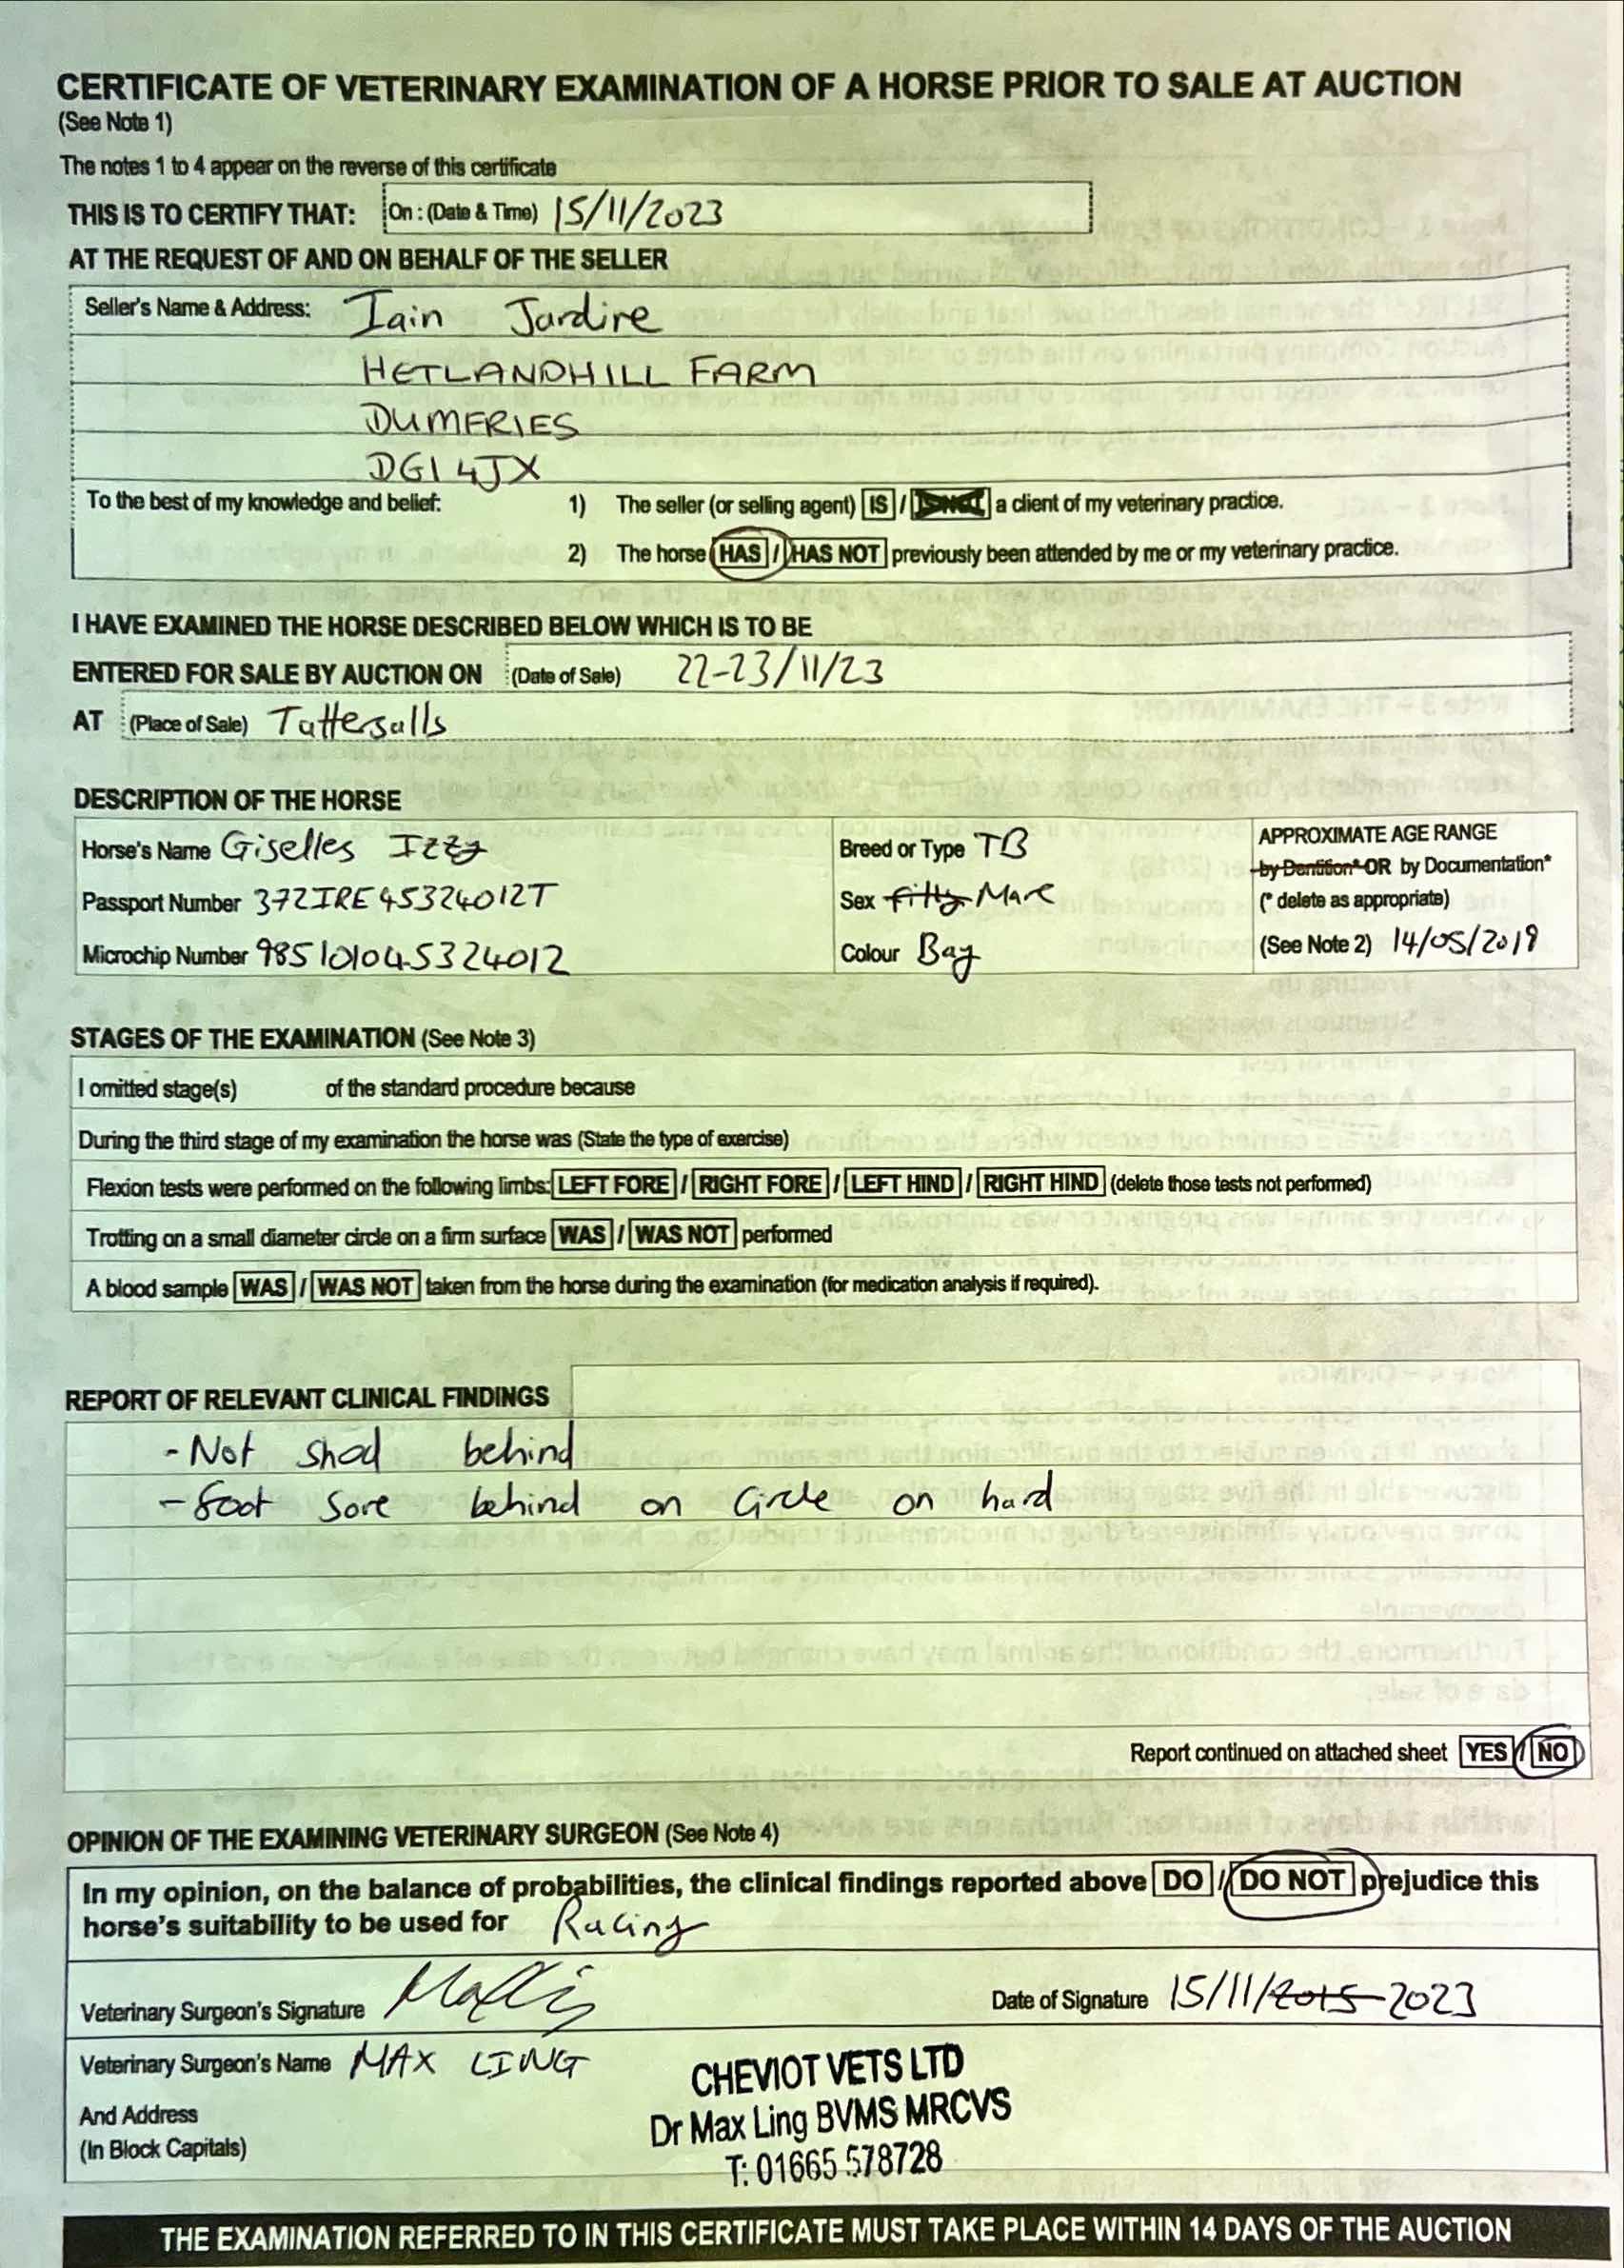 CERTIFICATE OF VETERINARY EXAMINATION OF A HORSE PRIOR TO SALE AT AUCTION
(See Note 1)
The notes 1 to 4 appear on the reverse of this certificate
THIS IS TO CERTIFY THAT: On : (Date & Time) 15/11/2023
AT THE REQUEST OF AND ON BEHALF OF THE SELLER
Seller's Name & Address: Iain Jardine
HETLANDHILL FARM
DUMFRIES
DG1 4JX
To the best of my knowledge and belief: 1) The seller (or selling agent) IS / IS NOT a client of my veterinary practice.
2) The horse HAS / HAS NOT previously been attended by me or my veterinary practice.
I HAVE EXAMINED THE HORSE DESCRIBED BELOW WHICH IS TO BE
ENTERED FOR SALE BY AUCTION ON (Date of Sale) 22-23/11/23
AT (Place of Sale) Tattersalls
DESCRIPTION OF THE HORSE
Horse's Name Giselles Izzy Breed or Type TB APPROXIMATE AGE RANGE
by Dentition* OR by Documentation*
Passport Number 372IRE45324012T Sex Filly Mare (* delete as appropriate)
Microchip Number 985101045324012 Colour Bay (See Note 2) 14/05/2019
STAGES OF THE EXAMINATION (See Note 3)
I omitted stage(s) of the standard procedure because
During the third stage of my examination the horse was (State the type of exercise)
Flexion tests were performed on the following limbs: LEFT FORE / RIGHT FORE / LEFT HIND / RIGHT HIND (delete those tests not performed)
Trotting on a small diameter circle on a firm surface WAS / WAS NOT performed
A blood sample WAS / WAS NOT taken from the horse during the examination (for medication analysis if required).
REPORT OF RELEVANT CLINICAL FINDINGS
- Not shod behind
- Foot sore behind on circle on hard
Report continued on attached sheet YES / NO
OPINION OF THE EXAMINING VETERINARY SURGEON (See Note 4)
In my opinion, on the balance of probabilities, the clinical findings reported above DO / DO NOT prejudice this
horse's suitability to be used for Racing
Veterinary Surgeon's Signature Date of Signature 15/11/2015 2023
Veterinary Surgeon's Name MAX LING
And Address
(In Block Capitals)
CHEVIOT VETS LTD
Dr Max Ling BVMS MRCVS
T: 01665 578728
THE EXAMINATION REFERRED TO IN THIS CERTIFICATE MUST TAKE PLACE WITHIN 14 DAYS OF THE AUCTION